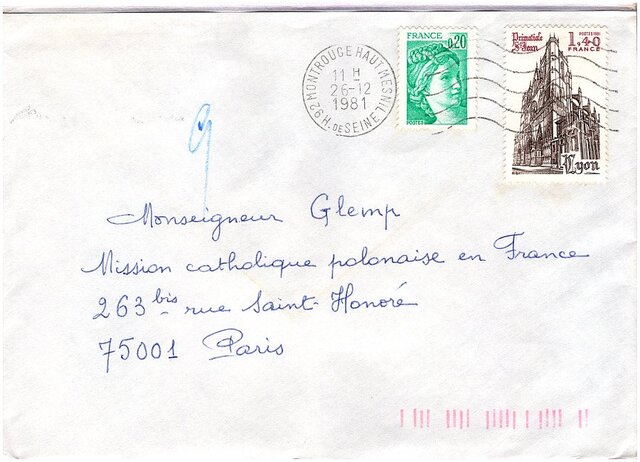 FRANCE
0,20
POSTES
Primatiale
St Jean
POSTES 1981
1,40
FRANCE
Lyon
92 MONTROUGE HAUT MESNIL
11 H
26-12
1981
H. DE SEINE
9
Monseigneur Glemp
Mission catholique polonaise en France
263 bis rue Saint-Honoré
75001 Paris